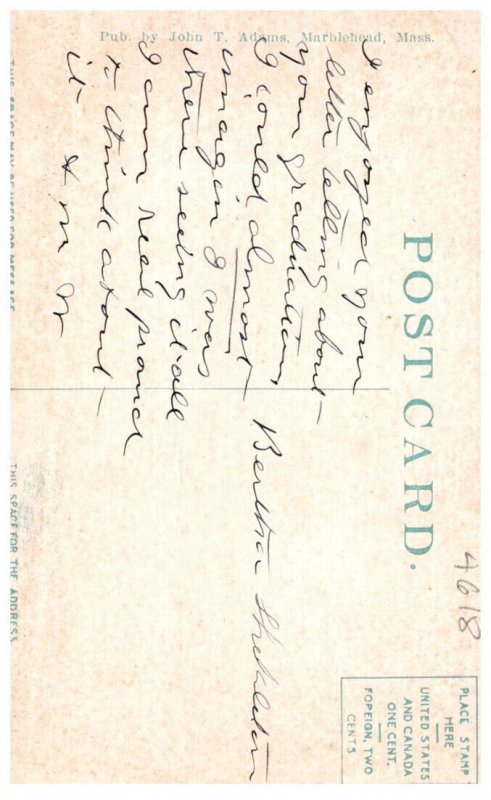 Pub. by John T. Adams, Marblehead, Mass.
POST CARD.
THIS SPACE MAY BE USED FOR MESSAGE
THIS SPACE FOR THE ADDRESS
PLACE STAMP
HERE
UNITED STATES
AND CANADA
ONE CENT.
FOREIGN, TWO
CENTS
4618
I enjoyed your
letter telling about
your graduation,
I could almost
imagin I was
there seeing it all
I am real proud
to think about
it
Bertha